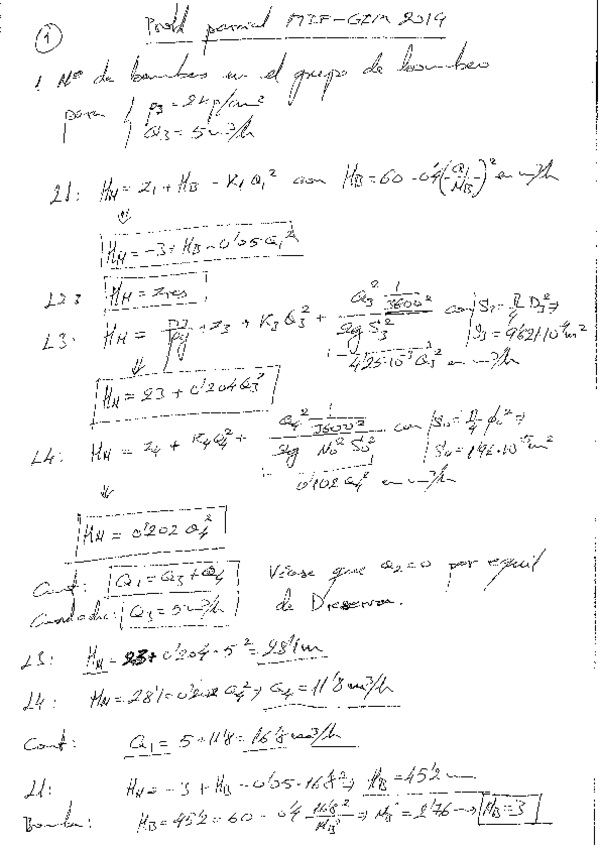 ①
Probl. parcial MIF-GIM 2019
1. Nº de bombas en el grupo de bombeo
para { p3 = 2 kp/cm²
Q3 = 5 m³/h
L1: HM = z1 + HB - K1 Q1² con HB = 60 - 0'4 (Q1/NB)² en m³/h
⇓
HM = -3 + HB - 0'05·Q1²
L2: HM = zres
L3: HM = p3/ρg + z3 + K3 Q3² + Q3² 1/3600² / 2g S3² con | S3 = π/4 D3² ⇒
S3 = 9'621·10⁻⁴ m²
4'25·10⁻³ Q3² en m³/h
⇓
HM = 23 + 0'204 Q3²
L4: HM = z4 + K4 Q4² + Q4² 1/3600² / 2g N0² S0² con | S0 = π/4 ϕ0² ⇒
S0 = 1'96·10⁻⁵ m²
0'102 Q4² en m³/h
⇓
HM = 0'202 Q4²
Cont: Q1 = Q3 + Q4 Véase que Q2 = 0 por equil
Q3 = 5 m³/h de Presiones.
L3: HM = 23 + 0'204·5² = 28'1 m
L4: HM = 28'1 = 0'202 Q4² ⇒ Q4 = 11'8 m³/h
Cont: Q1 = 5 + 11'8 = 16'8 m³/h
L1: HM = -3 + HB - 0'05·16'8² ⇒ HB = 45'2 m
Bomba: HB = 45'2 = 60 - 0'4 16'8²/NB² ⇒ NB = 2'76 → NB = 3